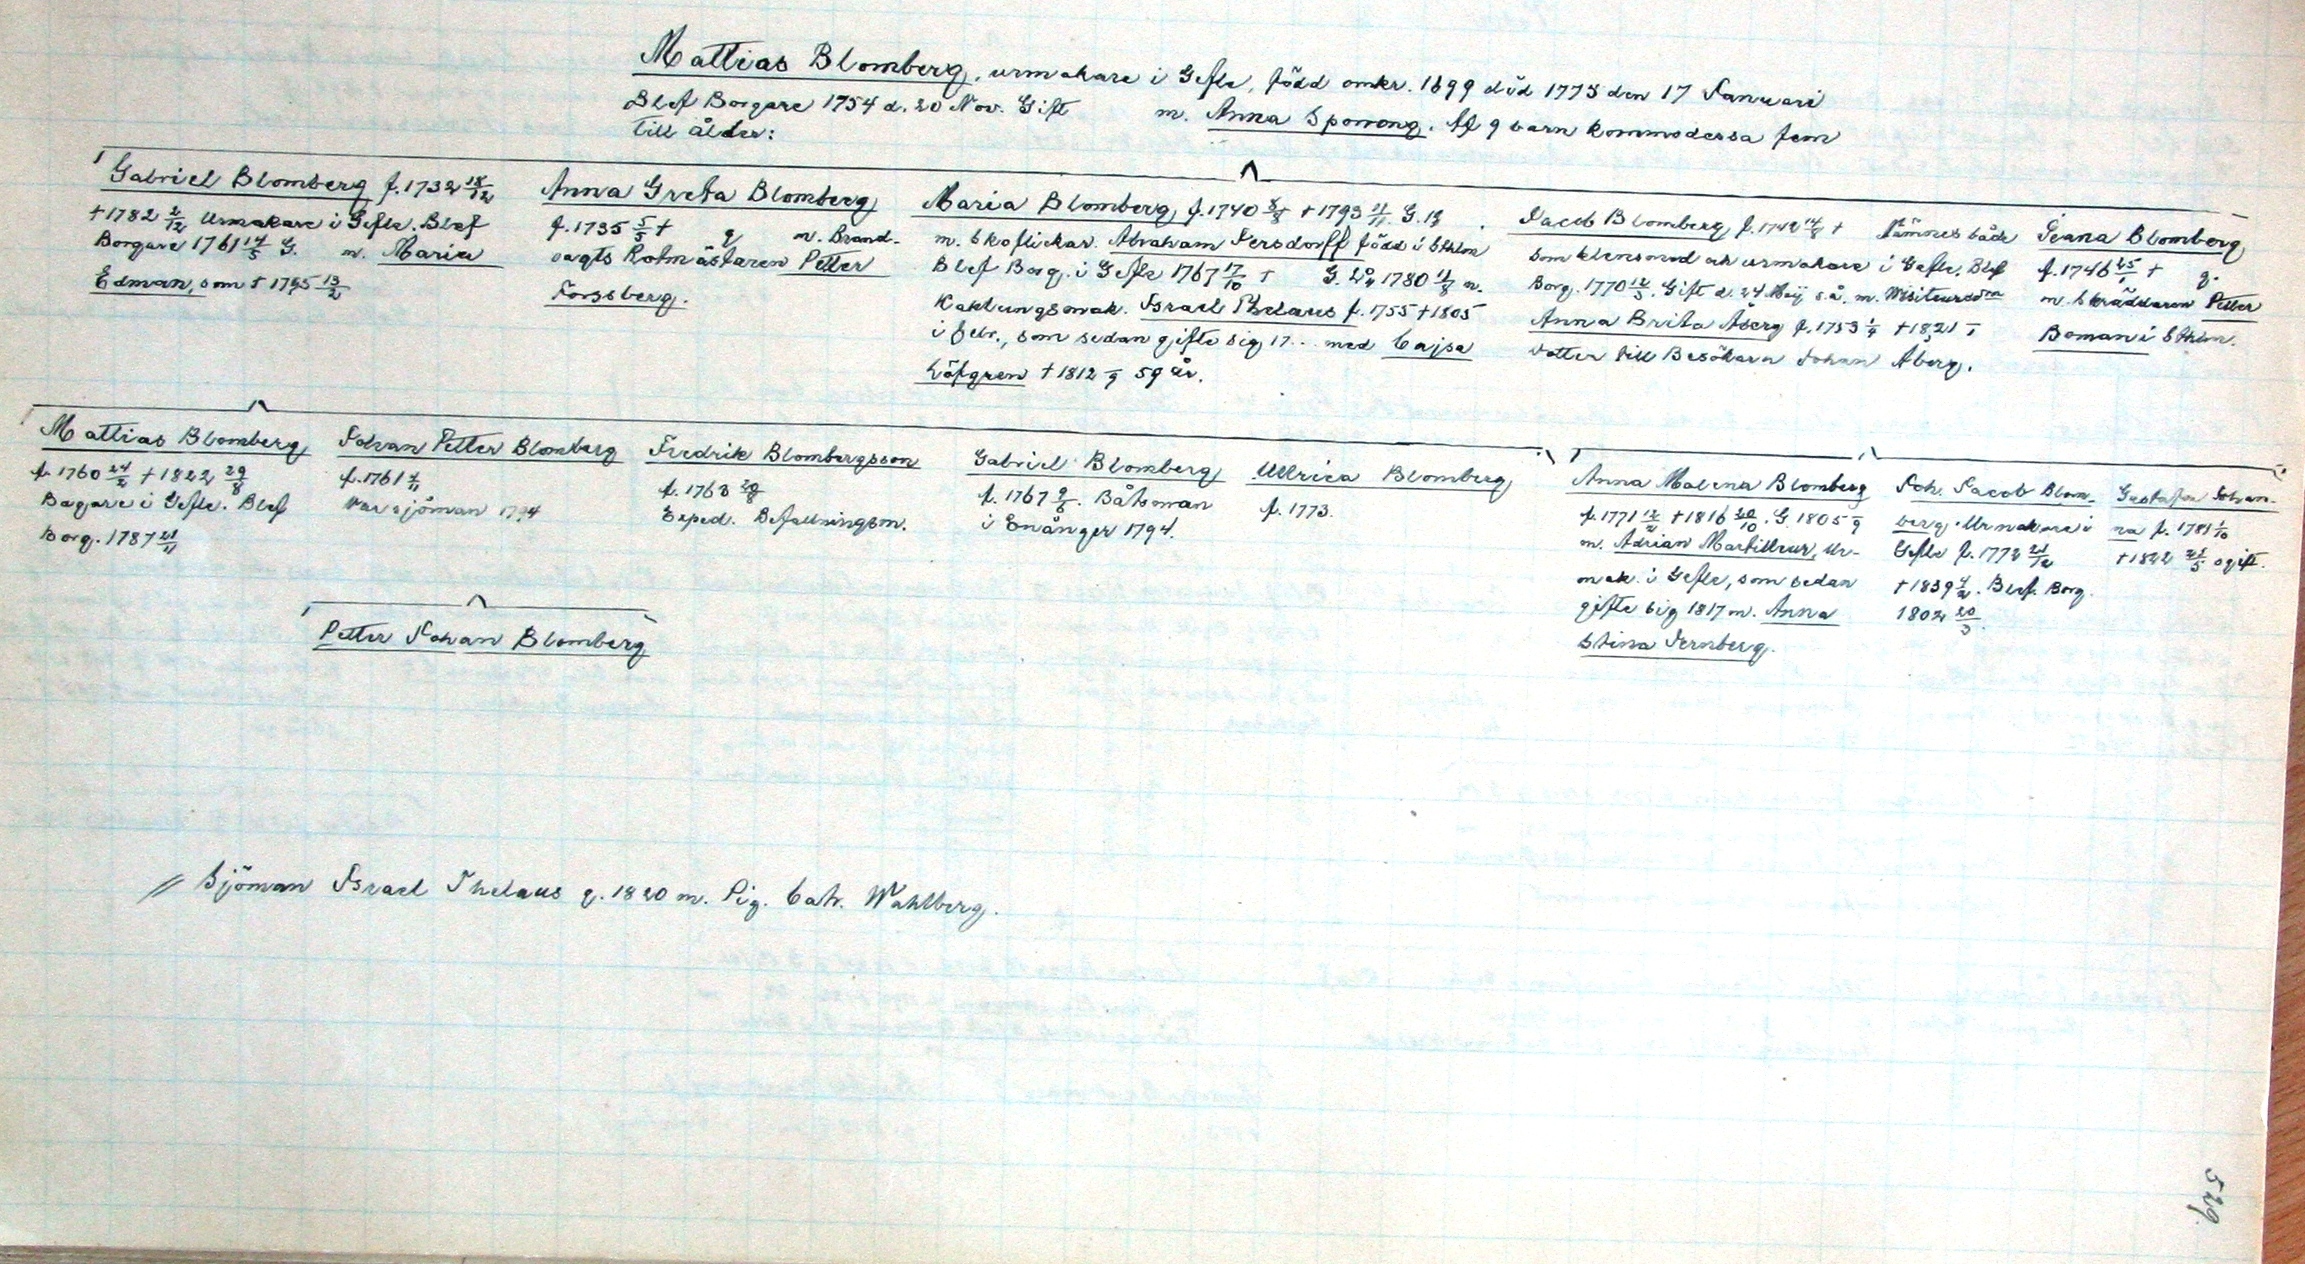 Mattias Blomberg, urmakare i Gefle, född omkr. 1699 död 1773 den 17 Januari
Blef Borgare 1754 d. 20 Nov. Gift m. Anna Sporrong. Af 9 barn kommo dessa fem
till ålder:
Gabriel Blomberg f. 1732 18/12
† 1782 2/12 Urmakare i Gefle. Blef
Borgare 1761 14/5 G. m. Maria
Edman, som † 1795 13/2
Anna Greta Blomberg
f. 1735 5/5 † g m. Brand-
vagts Rotmästaren Petter
Forssberg.
Maria Blomberg f. 1740 8/8 † 1793 11/11. G. 1º
m. Skoflickar. Abraham Persdorff född i Sthlm
Blef Borg. i Gefle 1767 17/10 † G. 2º 1780 11/8 m.
Kakelungsmak. Israel Thelaus f. 1755 † 1805
i Febr., som sedan gifte sig 17... med Cajsa
Löfgren † 1812 -/9 59 år.
Jacob Blomberg f. 1742 14/8 † Nämnes både
som klensmed och urmakare i Gefle, Blef
Borg. 1770 12/3. Gift d. 24 Maij s.å. m. Wisiteursdra
Anna Brita Åberg f. 1753 1/9 † 1821
dotter till Besökaren Johan Åberg.
Jeana Blomberg
f. 1746 25/1 † g.
m. Skräddaren Petter
Boman i Sthlm.
Mattias Blomberg
f. 1760 24/2 † 1822 29/8
Bagare i Gefle. Blef
Borg. 1787 21/11
Johan Petter Blomberg
f. 1761 4/11
Var sjöman 1794
Fredrik Blombergsson
f. 1763 20/8
Exped. Befallningsm.
Gabriel Blomberg
f. 1767 9/6. Båtsman
i Enånger 1794.
Ullrica Blomberg
f. 1773.
Anna Malena Blomberg
f. 1771 12/2 † 1816 20/10. G. 1805 -/9
m. Adrian Martilleur, Ur-
mak. i Gefle, som sedan
gifte sig 1817 m. Anna
Stina Fernberg.
Joh. Jacob Blom-
berg. Urmakare i
Gefle f. 1773 21/12
† 1839 4/2. Blef. Borg.
1802 20/3.
Gustafva Johan-
na f. 1781 1/10
† 1822 25/5 ogift.
Petter Johan Blomberg
// Sjöman Israel Thelaus g. 1820 m. Pig. Cath. Wahlberg.
529.